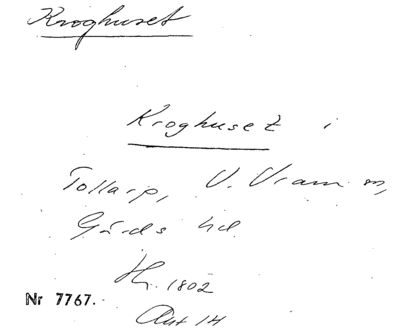 Kroghuset
Kroghuset i
Tollarp, V. Vram sn,
Gärds hd
Hz. 1802
Nr 7767.
Akt 14